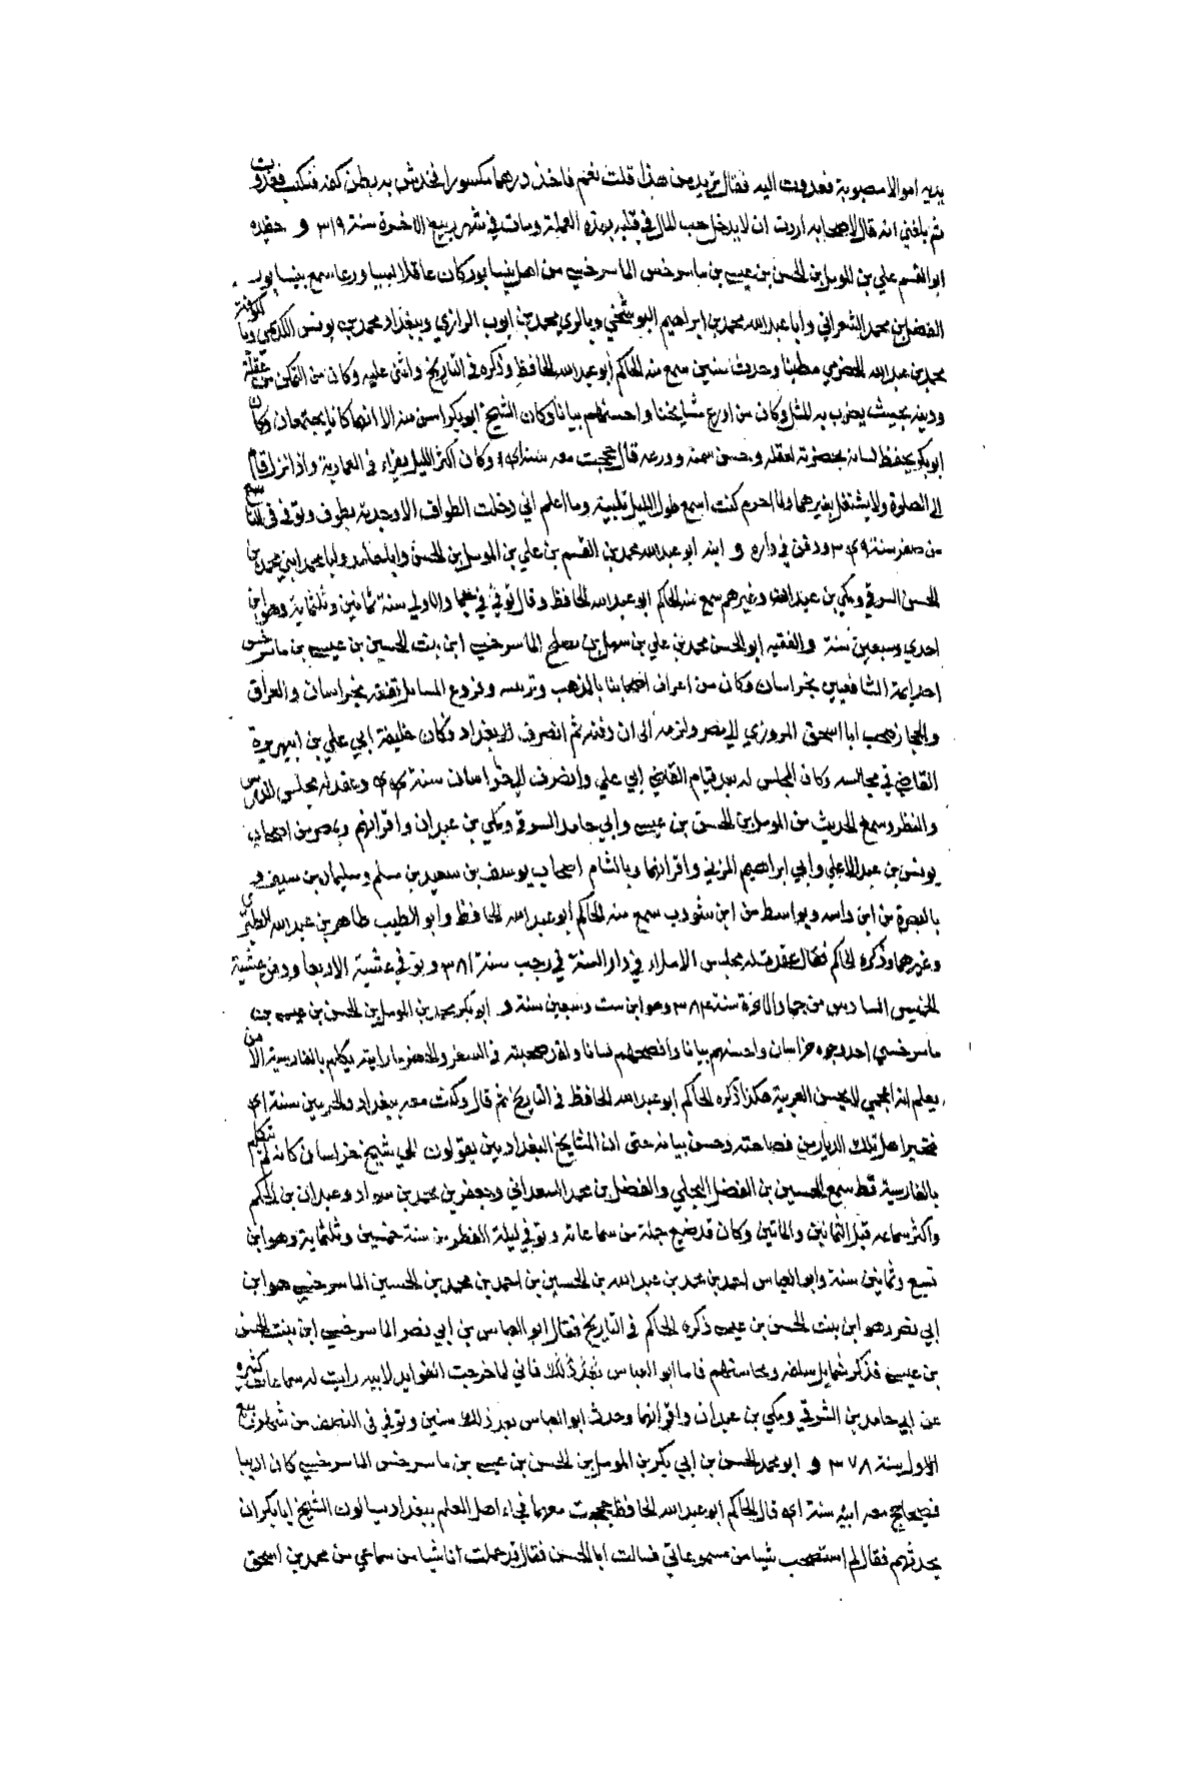 يديه اموالا مصبوبة فعدوت اليه فقال تريد من هذا قلت نعم فاخذ درهما مكسورا فخدش به بطن كفه فنكب فعدوت
ثم بلغني انه قال لاصحابه اردت ان لا يدخل حب المال في قلبه بهذه العملة ومات في شهر ربيع الاخرة سنة ٣١٩ و حفيده
ابو القسم علي بن المومل بن الحسن بن عيسى بن ماسرخس الماسرخسي من اهل نيسابور كان عاقلا لبيبا ورعا سمع بنيسابور
الفضل بن محمد الشعراني وابا عبد الله محمد بن ابراهيم البوشنجي وبالري محمد بن ايوب الرازي وببغداد محمد بن يونس الكديمي وبالكوفة
محمد بن عبد الله الحضرمي مطينا وحدث سنين سمع منه الحاكم ابو عبد الله الحافظ وذكره في التاريخ واثنى عليه وكان من التمكن من عقله
ودينه بحيث يضرب به المثل وكان من اورع مشايخنا واحسنهم بيانا وكان الشيخ ابو بكر اسن منه الا انهما كانا يجتمعان وكان
ابو بكر يحفظ لسانه بحضرته لعقله وحسن سمته وورعه قال حججت معه سنة ٣٤١ وكان اكثر الليل يقراء في العمارية واذا نزل قام
الى الصلوة ولا يشتغل بغيرهما ولما احرم كنت اسمع طول الليل تلبيته وما اعلم اني دخلت الطواف الا وجدته يطوف وتوفي في التاسع
من صفر سنة ٣٤٩ ودفن في داره و ابنه ابو عبد الله محمد بن القسم بن علي بن المومل بن الحسن وابا حامد وابا محمد ابني محمد بن
الحسن الشرقي ومكي بن عبدان وغيرهم سمع منه الحاكم ابو عبد الله الحافظ وقال توفي في جما والاولى سنة ثمانين وثلثماية وهو ابن
احدى وسبعين سنة والفقيه ابو الحسن محمد بن علي بن سهل بن مصلح الماسرخسي ابن بنت الحسين بن عيسى بن ماسرخس
احد ايمة الشافعيين بخراسان وكان من اعرف اصحابنا بالمذهب وترتيبه وفروع المسايل تفقه بخراسان والعراق
والحجاز صحب ابا اسحق المروزي الى مصر ولزمه الى ان دفنه ثم انصرف الى بغداد وكان خليفة ابي علي بن ابي هريرة
القاضي في مجالسه وكان المجلس له بعد قيام القاضي ابي علي وانصرف الى خراسان سنة وعقد له مجلس الدرس
والنظر وسمع الحديث من المومل بن الحسن بن عيسى وابي حامد الشرقي ومكي بن عبدان واقرانهم وبمصر من اصحاب
يونس بن عبد الاعلي وابي ابراهيم المزني واقرانهما وبالشام اصحاب يوسف بن سعيد بن مسلم وسليمان بن سيف و
بالبصرة من ابن داسه وبواسط من ابن شوذب سمع منه الحاكم ابو عبد الله الحافظ وابو الطيب طاهر بن عبد الله الطبري
وغيرهما وذكره الحاكم فقال عقدت له مجلس الاملاء في دار السنة في رجب سنة ٣٨١ و توفي عشية الاربعا ودفن عشية
الخميس السادس من جما والاخرة سنة ٣٨٤ وهو ابن ست وسبعين سنة و ابو بكر محمد بن المومل بن الحسن بن عيسى بن
ماسرخسي احد وجوه خراسان واحسنهم بيانا وافصحهم لسانا ولقد صحبته في السفر والحضر ما رايته يتكلم بالفارسية الا من
يعلم انه اعجمي لا يحسن العربية هكذا ذكره الحاكم ابو عبد الله الحافظ في التاريخ ثم قال وكنت معه ببغداد والحرمين سنة ٣٤١
فتحير اهل تلك الديار من فصاحته وحسن بيانه حتى ان المشايخ البغداديين يقولون الى شيخ خراسان كانه لم يتكلم
بالفارسية قط سمع الحسين بن الفضل البجلي والفضل بن محمد الشعراني وجعفر بن محمد بن سوار وعبدان بن الحكم
واكثر سماعه قبل الثمانين والماتين وكان قد ضيع جملة من سماعاته وتوفي ليلة الفطر من سنة خمسين وثلثماية وهو ابن
تسع وثمانين سنة وابو العباس احمد بن محمد بن عبد الله بن الحسين بن احمد بن محمد بن الحسين الماسرخسي هو ابن
ابي نصر وهو ابن بنت الحسن بن عيسى ذكره الحاكم في التاريخ فقال ابو العباس بن ابي نصر الماسرخسي ابن بنت الحسن
بن عيسى فذكر شمايل سلفه ومحاسنهم فاما ابو العباس ذلك فاني لما خرجت الفوايد لابيه رايت له سماعات كثيرة
عن ابي حامد بن الشرقي ومكي بن عبدان واقرانهما وحدث ابو العباس بعد ذلك سنين وتوفي في النصف من شهر ربيع
الاول سنة ٣٧٨ و ابو محمد الحسن بن ابي بكر بن المومل بن الحسن بن عيسى بن ماسرخس الماسرخسي كان اديبا
فصيحا حج معه ابيه سنة ٣٤١ قال الحاكم ابو عبد الله الحافظ حججت معهما فجاء اهل العلم ببغداد يسالون الشيخ ابا بكر ان
يحدثهم فقال لم استصحب شيا من مسموعاتي فسالت ابا الحسن فقال قد حملت انا شيا من سماعي من محمد بن اسحق